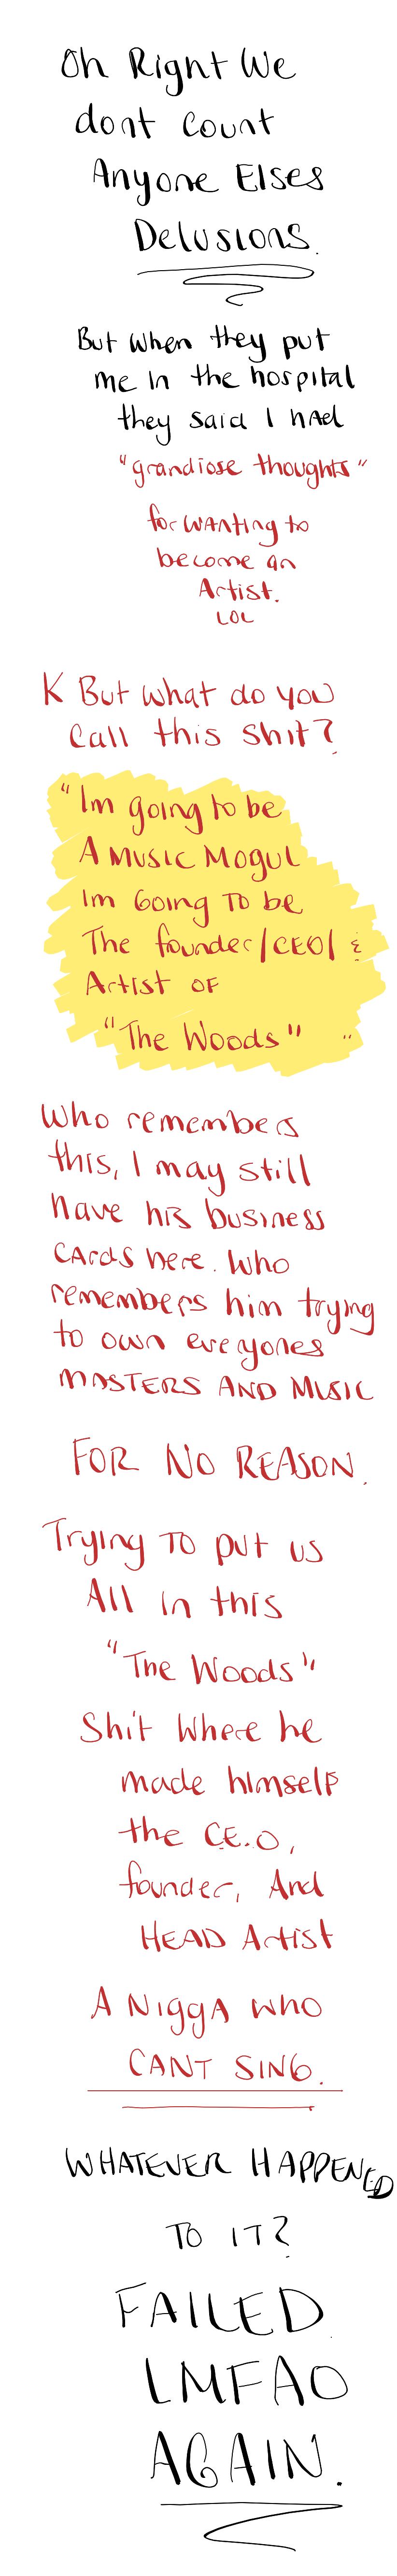 Oh Right We
dont count
Anyone Elses
Delusions.
But when they put
me in the hospital
they said I had
"grandiose thoughts"
for wanting to
become an
Artist.
LOL
K But what do you
call this shit?
"Im going to be
A MUSIC MOGUL
Im Going To be
The founder/CEO/&
Artist OF
"The Woods" "
Who remembers
this, I may still
have his business
cards here. Who
remembers him trying
to own everyones
MASTERS AND MUSIC
FOR NO REASON.
Trying To put us
All in this
"The Woods"
Shit Where he
made himself
the C.E.O,
founder, And
HEAD Artist
A NiggA who
CANT SING.
WHATEVER HAPPENED
TO IT?
FAILED.
LMFAO
AGAIN.